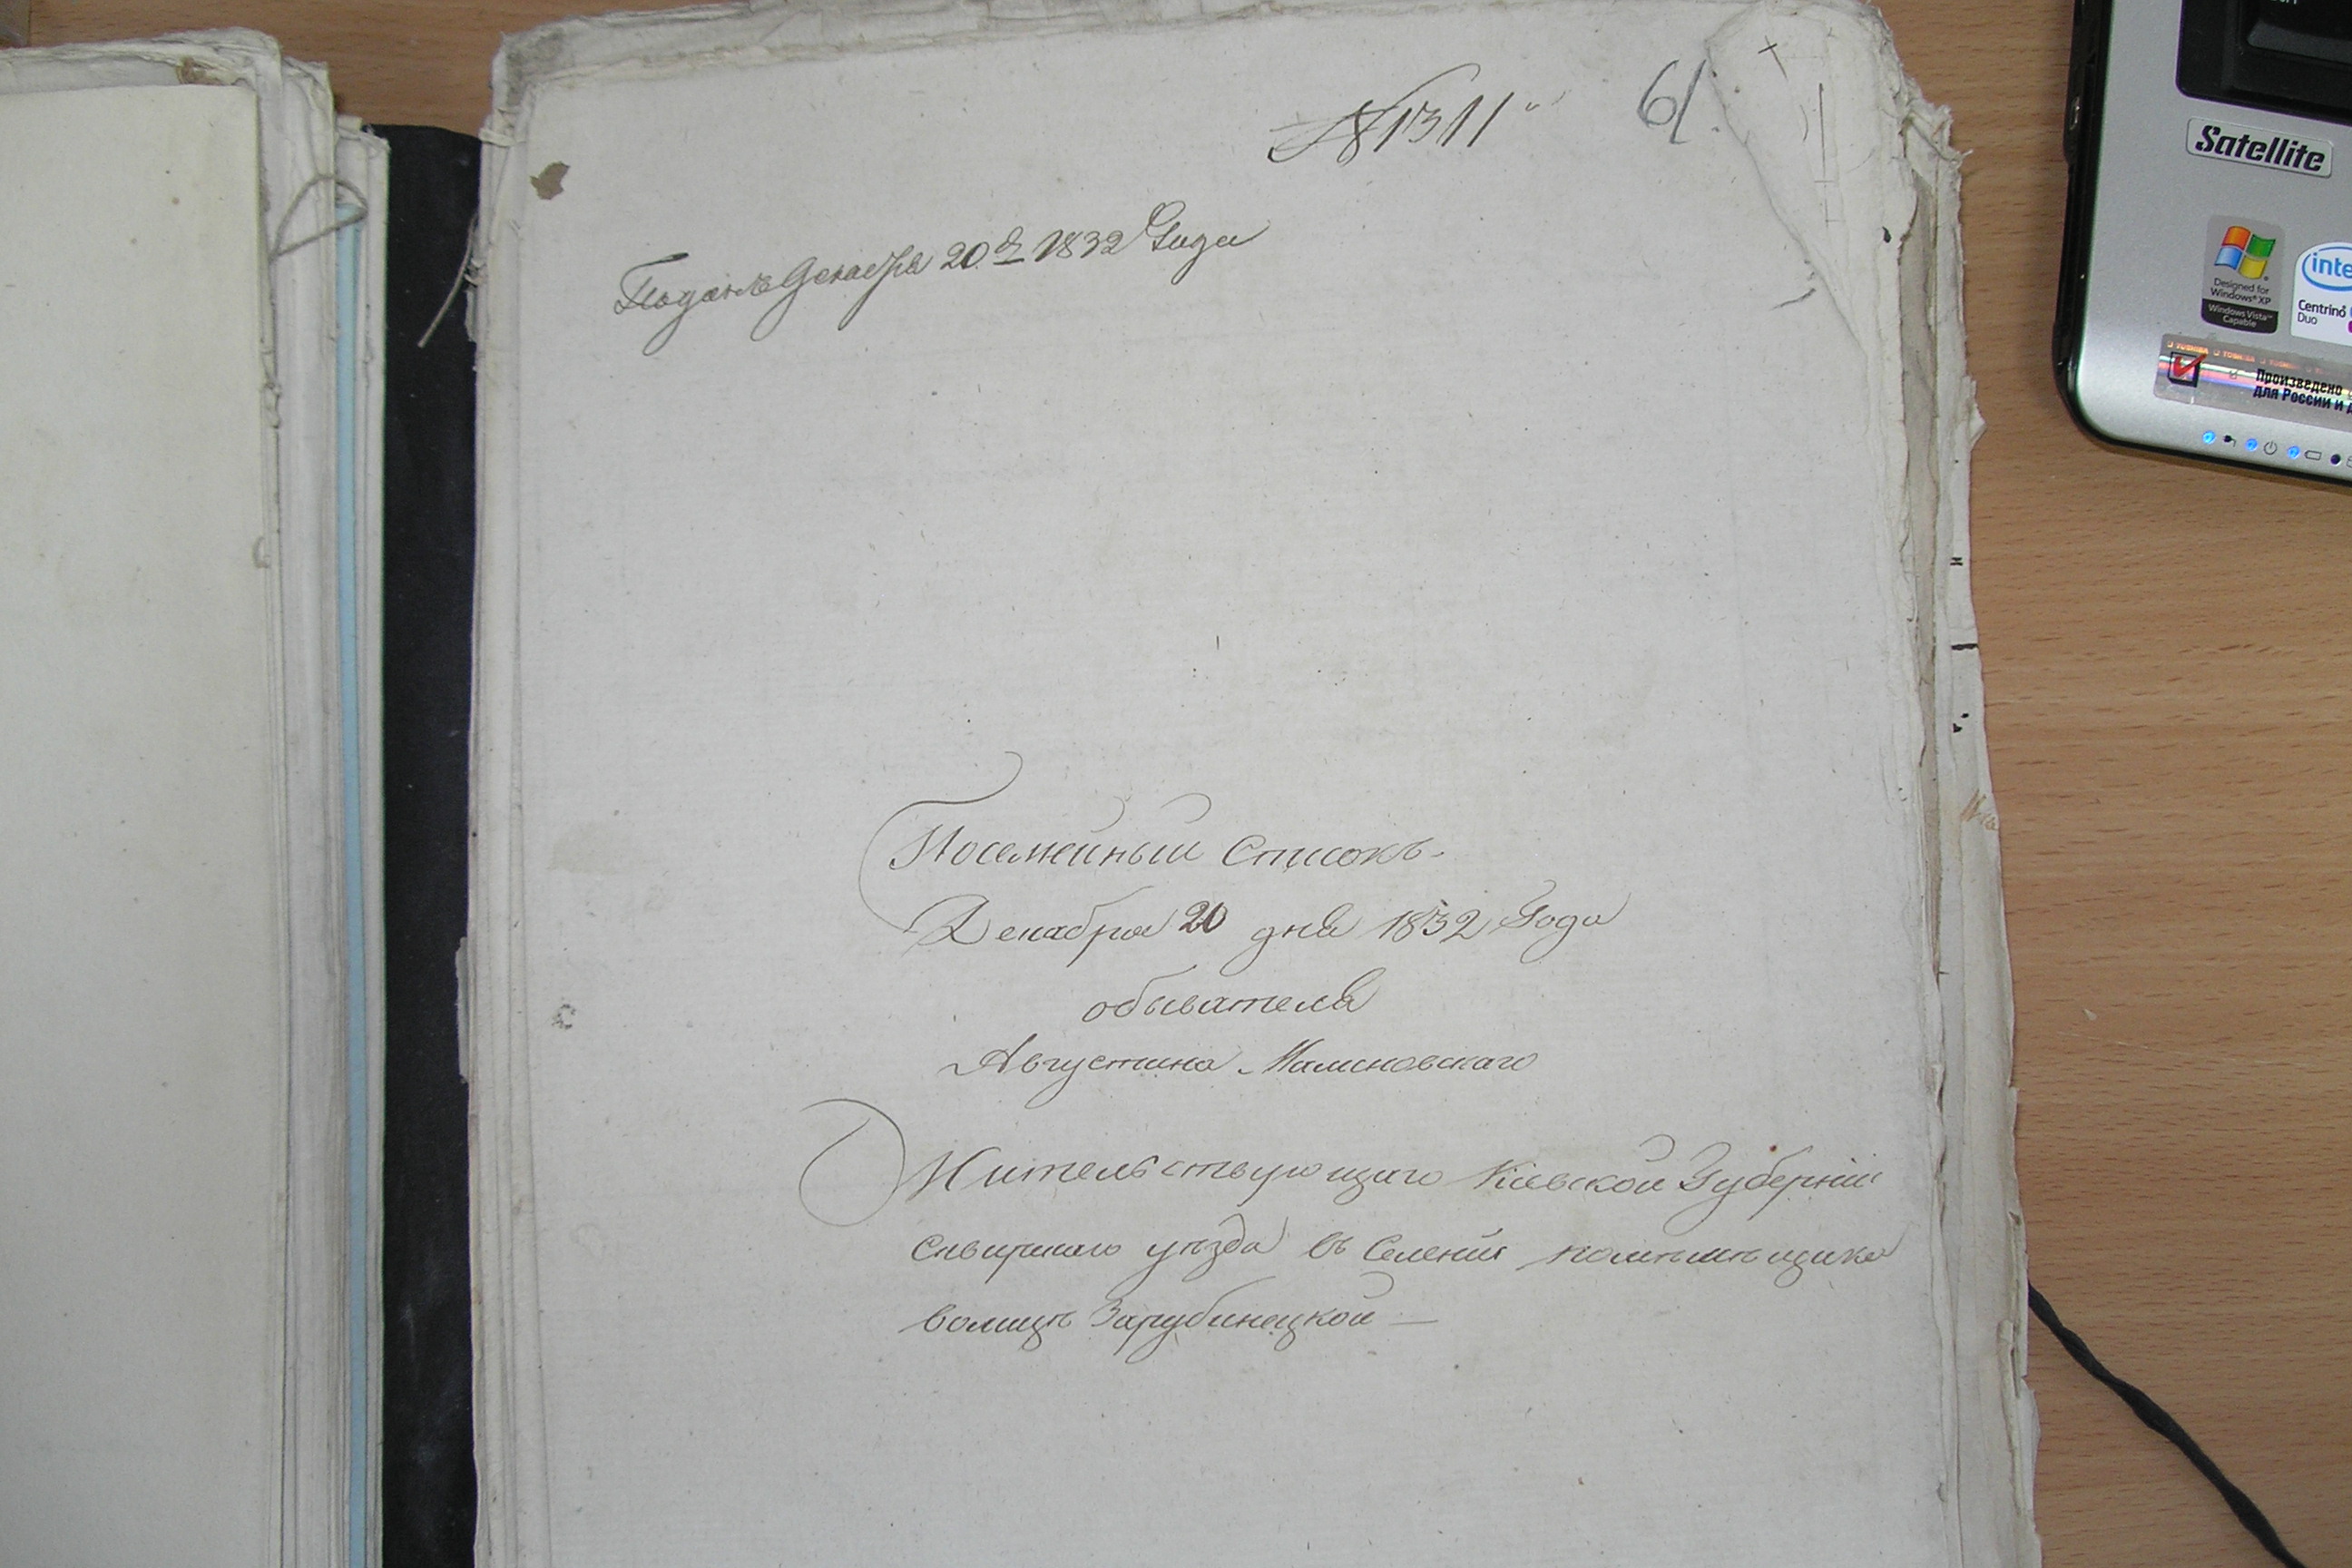 № 1311
61.
Поданъ Декабря 20 д. 1832 Года
Посемейный Списокъ
Декабря 20 дня 1832 Года
обывателя
Августина Малиновскаго
Жительствующаго Кіевской Губерніи
Сквирскаго уѣзда въ Селеніи помѣщика
волицѣ Зарубинецкой —
Satellite
Designed for
Windows® XP
Windows Vista™
Capable
inte
Centrino
Duo
TOSHIBA TOSHIBA
Произведено
для России и